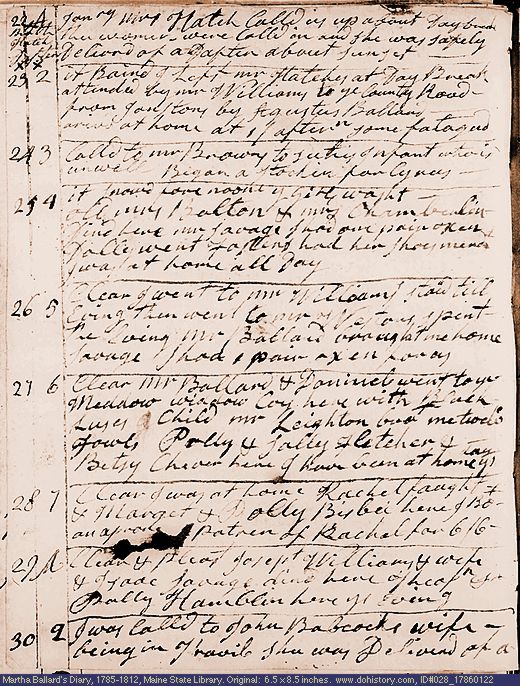 Janry mrs Hatch Calld us up about Day break
the women were Calld in and she was safely
Deliverd of a Dafter about sunset
23 2 it Raind I Left mr Hatches at Day Break
attended by mr Williams to ye County Road
from Jonstons by Ballard
arivd at home at 1 aftern some fatagud
24 3 Calld to mr Browns to see his infant who is
unwell Began a Stockin for Cyrus
25 4 it snowd fore noon ye Girls washt
old mrs Bolton & mrs Chamberlin
Dind here mr Savage had one pair oxen
Dolly went to had her shoes mend
I was at home all Day
26 5 Clear I went to mr Williams staid till
Evng then went to mr Westons spent
the Evning mr Ballard brought me home
Savage had 1 pair oxen for
27 6 Clear mr Ballard & went to ye
Meddow widdow Coy here with
a Child mr Leighton bot
fowls Polly & Salley Fletcher &
Betsy Chever here I have been at home
28 7 Clear I was at home Rachel
& Marget & Dolly Bisbee here I Bot
an apron Patren of Rachel for 6/6
29 A Clear & Pleast Joseph Williams & wife
& Isaac Savage dind here
Polly Hamblin here ys Evning
30 2 I was Calld to John Babcocks wife
being in Travil she was Deliverd of a
Martha Ballard's Diary, 1785-1812, Maine State Library. Original: 6.5 x 8.5 inches. www.dohistory.com, ID#028_17860122